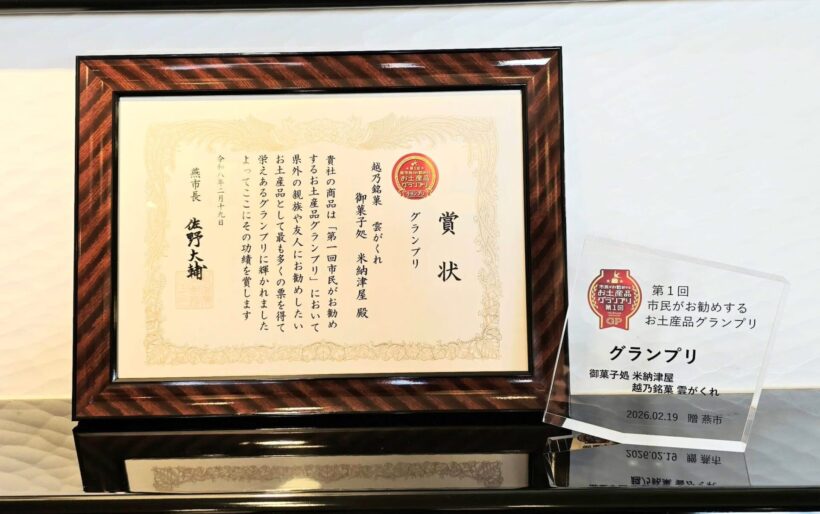 賞状
グランプリ
越乃銘菓 雲がくれ
御菓子処 米納津屋 殿
貴社の商品は「第一回市民がお勧め
するお土産品グランプリ」において
県外の親族や友人にお勧めしたい
お土産品として最も多くの票を得て
栄えあるグランプリに輝かれました
よってここにその功績を賞します
令和八年二月十九日
燕市長 佐野大輔
お土産品
グランプリ
市民がお勧めする
お土産品
グランプリ
第1回
GP
第1回
市民がお勧めする
お土産品グランプリ
グランプリ
御菓子処 米納津屋
越乃銘菓 雲がくれ
2026.02.19 贈 燕市